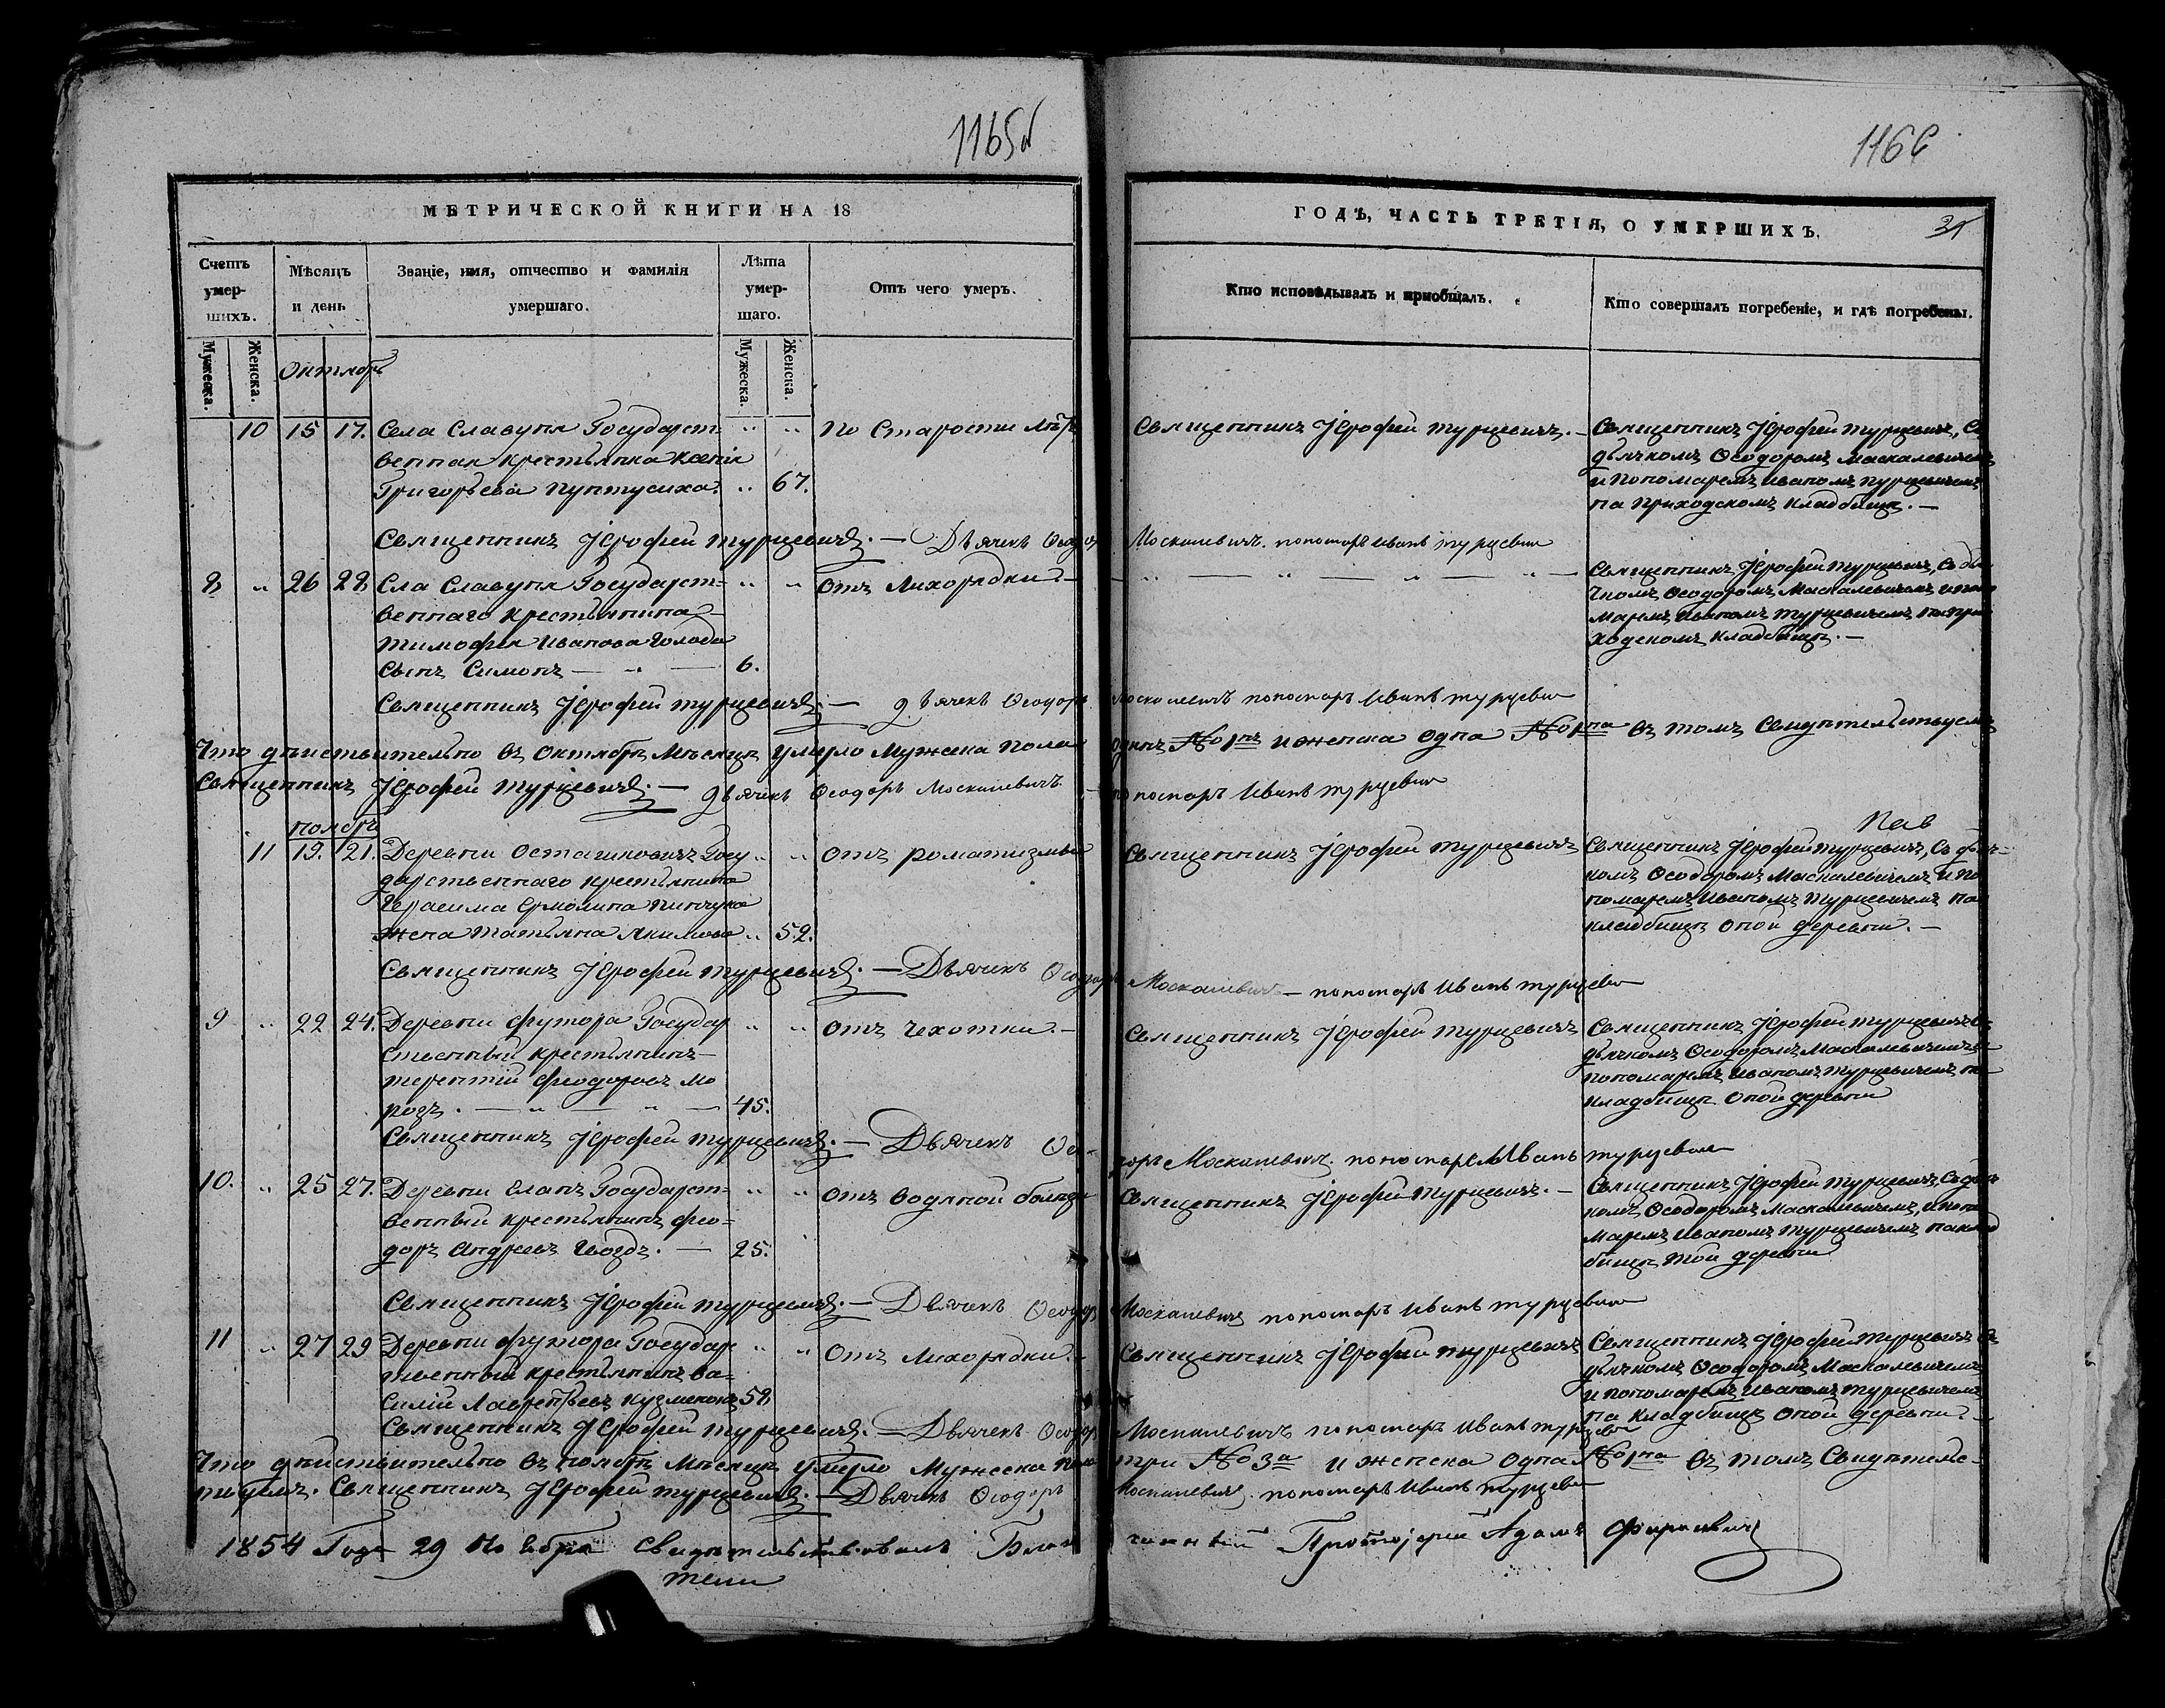 1165об
1166
МЕТРИЧЕСКОЙ КНИГИ НА 18
ГОДѢ, ЧАСТЬ ТРЕТІЯ, О УМЕРШИХЪ.
31
Счетъ умер-шихъ.
Мѣсяцъ и день
Званіе, имя, отчество и фамилія умершаго.
Лѣта умер-шаго.
Отъ чего умеръ.
Кто исповѣдывалъ и пріобщалъ.
Кто совершалъ погребеніе, и гдѣ погребены.
Мужеска.
Женска.
Октябрь
Мужеска.
Женска.
10 15 17. Села Славуня Государст- " " По Старости лѣтъ
венная крестьянка Ксенія
Григорьева Пунтусиха. " 67.
Священникъ Іерофей Турцевичъ. —
Священникъ Іерофей Турцевичъ, Съ
дьячкомъ Ѳеодоромъ Маскалевичемъ
и Пономаремъ Иваномъ Турцевичемъ
на Приходскомъ Кладбищѣ. —
Священникъ Іерофей Турцевичъ. — Дьячекъ Ѳеодоръ Москалевичъ. пономарь Иванъ Турцевичъ
8 " 26 28 Сла Славуня Государст- " " Отъ Лихорадки. —
веннаго Крестьянина
Тимофея Иванова Голода
Сынъ Симонъ — " — 6.
— " — " — " — " —
Священникъ Іерофей Турцевичъ, Съ дья
чкомъ Ѳеодоромъ Маскалевичемъ и поно
маремъ Иваномъ Турцевичемъ на при
ходскомъ кладбищѣ. —
Священникъ Іерофей Турцевичъ. — дьячекъ Ѳеодоръ Москалевичъ пономарь Иванъ Турцевич
Что дѣйствительно въ Октябрѣ Мѣсяцѣ умерло Мужеска пола одинъ №1нъ и женска одна №1на въ томъ Свидѣтельствуемъ
Священникъ Іерофей Турцевичъ. — дьячекъ Ѳеодоръ Москалевичъ — пономарь Иванъ Турцевич
Ноябрь
11 19. 21. Деревни Осташковичъ Госу- " " Отъ романтизма
дарственнаго крестьянина
Герасима Ермолина Пинчука
жена Татьяна Якимова " 52.
Священникъ Іерофей Турцевичъ
Священникъ Іерофей Турцевичъ, Съ дьяч-
комъ Ѳеодоромъ Маскалевичемъ и По
номаремъ Иваномъ Турцевичемъ на
кладбищѣ оной деревни. —
Священникъ Іерофей Турцевичъ. — Дьячекъ Ѳеодоръ Москалевичъ — пономарь Иванъ Турцевич
9 " 22 24. Деревни Футора Государ " " Отъ Чехотки. —
ственный крестьянинъ
Терентій Феодоровъ Мо
розъ. — " — " — 45.
Священникъ Іерофей Турцевичъ
Священникъ Іерофей Турцевичъ Съ
дьячкомъ Ѳеодоромъ Маскалевичемъ и
пономаремъ Иваномъ Турцевичемъ на
кладбищѣ оной деревни
Священникъ Іерофей Турцевичъ. — Дьячекъ Ѳео-доръ Москалевичъ. пономарь Иванъ Турцевич
10. " 25 27. Деревни Еланъ Государст- " " Отъ водяной болѣзни
венный крестьянинъ Фео-
доръ Андреевъ Гвоздъ. — 25.
Священникъ Іерофей Турцевичъ. —
Священникъ Іерофей Турцевичъ, Съ дьяч
комъ Ѳеодоромъ Маскалевичемъ, и поно
маремъ Иваномъ Турцевичемъ на клад
бищѣ той деревни
Священникъ Іерофей Турцевичъ. — Дьячекъ Ѳеодоръ Москалевичъ пономарь Иванъ Турцевич
11 " 27 29 Деревни Футора Государ " " Отъ Лихорадки. —
твенный крестьянинъ Ва-
силій Лаврентьевъ Кузменокъ 58.
Священникъ Іерофей Турцевичъ
Священникъ Іерофей Турцевичъ Съ
дьячкомъ Ѳеодоромъ Маскалевичемъ
и пономаремъ Иваномъ Турцевичемъ
на кладбищѣ оной деревни. —
Священникъ Іерофей Турцевичъ. — Дьячекъ Ѳеодоръ Москалевичъ пономарь Иванъ Турцевич
Что дѣйствительно въ ноябрѣ Мѣсяцѣ умерло Мужеска пола три №3а и женска одна №1на въ томъ Свидѣтельс-
твуемъ. Священникъ Іерофей Турцевичъ. — Дьячекъ Ѳеодоръ Москалевичъ. пономарь Иванъ Турцевич
1854 Года 29 Ноября Свидѣтельствовалъ Благочинный Протоіерей Адамъ